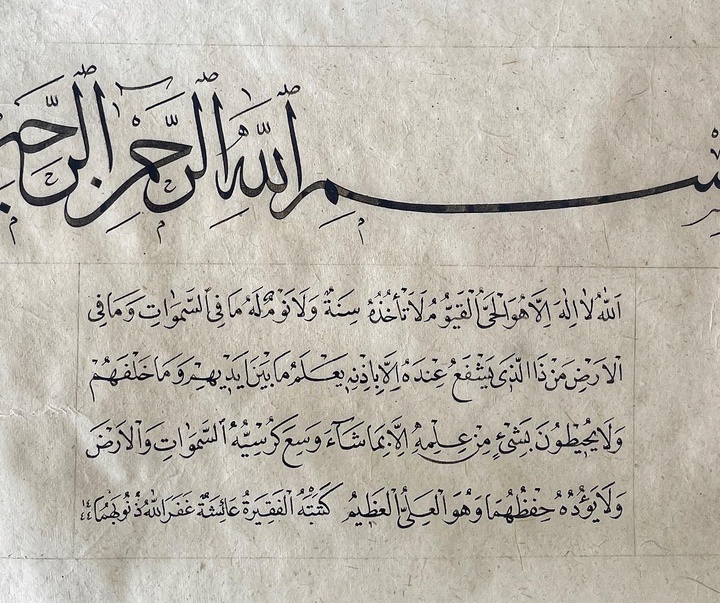 بِسْمِ ٱللَّهِ ٱلرَّحْمٰنِ ٱلرَّحِيـ
اَللّٰهُ لَا اِلٰهَ اِلَّا هُوَ الْحَيُّ الْقَيُّومُ لَا تَأْخُذُهُ سِنَةٌ وَلَا نَوْمٌ لَهُ مَا فِي السَّمٰوَاتِ وَمَا فِي
الْاَرْضِ مَنْ ذَا الَّذِي يَشْفَعُ عِنْدَهُ اِلَّا بِاِذْنِهِ يَعْلَمُ مَا بَيْنَ اَيْدِيهِمْ وَمَا خَلْفَهُمْ
وَلَا يُحِيطُونَ بِشَيْءٍ مِنْ عِلْمِهِ اِلَّا بِمَا شَاءَ وَسِعَ كُرْسِيُّهُ السَّمٰوَاتِ وَالْاَرْضَ
وَلَا يَؤُدُهُ حِفْظُهُمَا وَهُوَ الْعَلِيُّ الْعَظِيمُ كَتَبَتْهُ الْفَقِيرَةُ عَائِشَةٌ غَفَرَ اللّٰهُ ذُنُوبَهُمَا ١٤٤٤